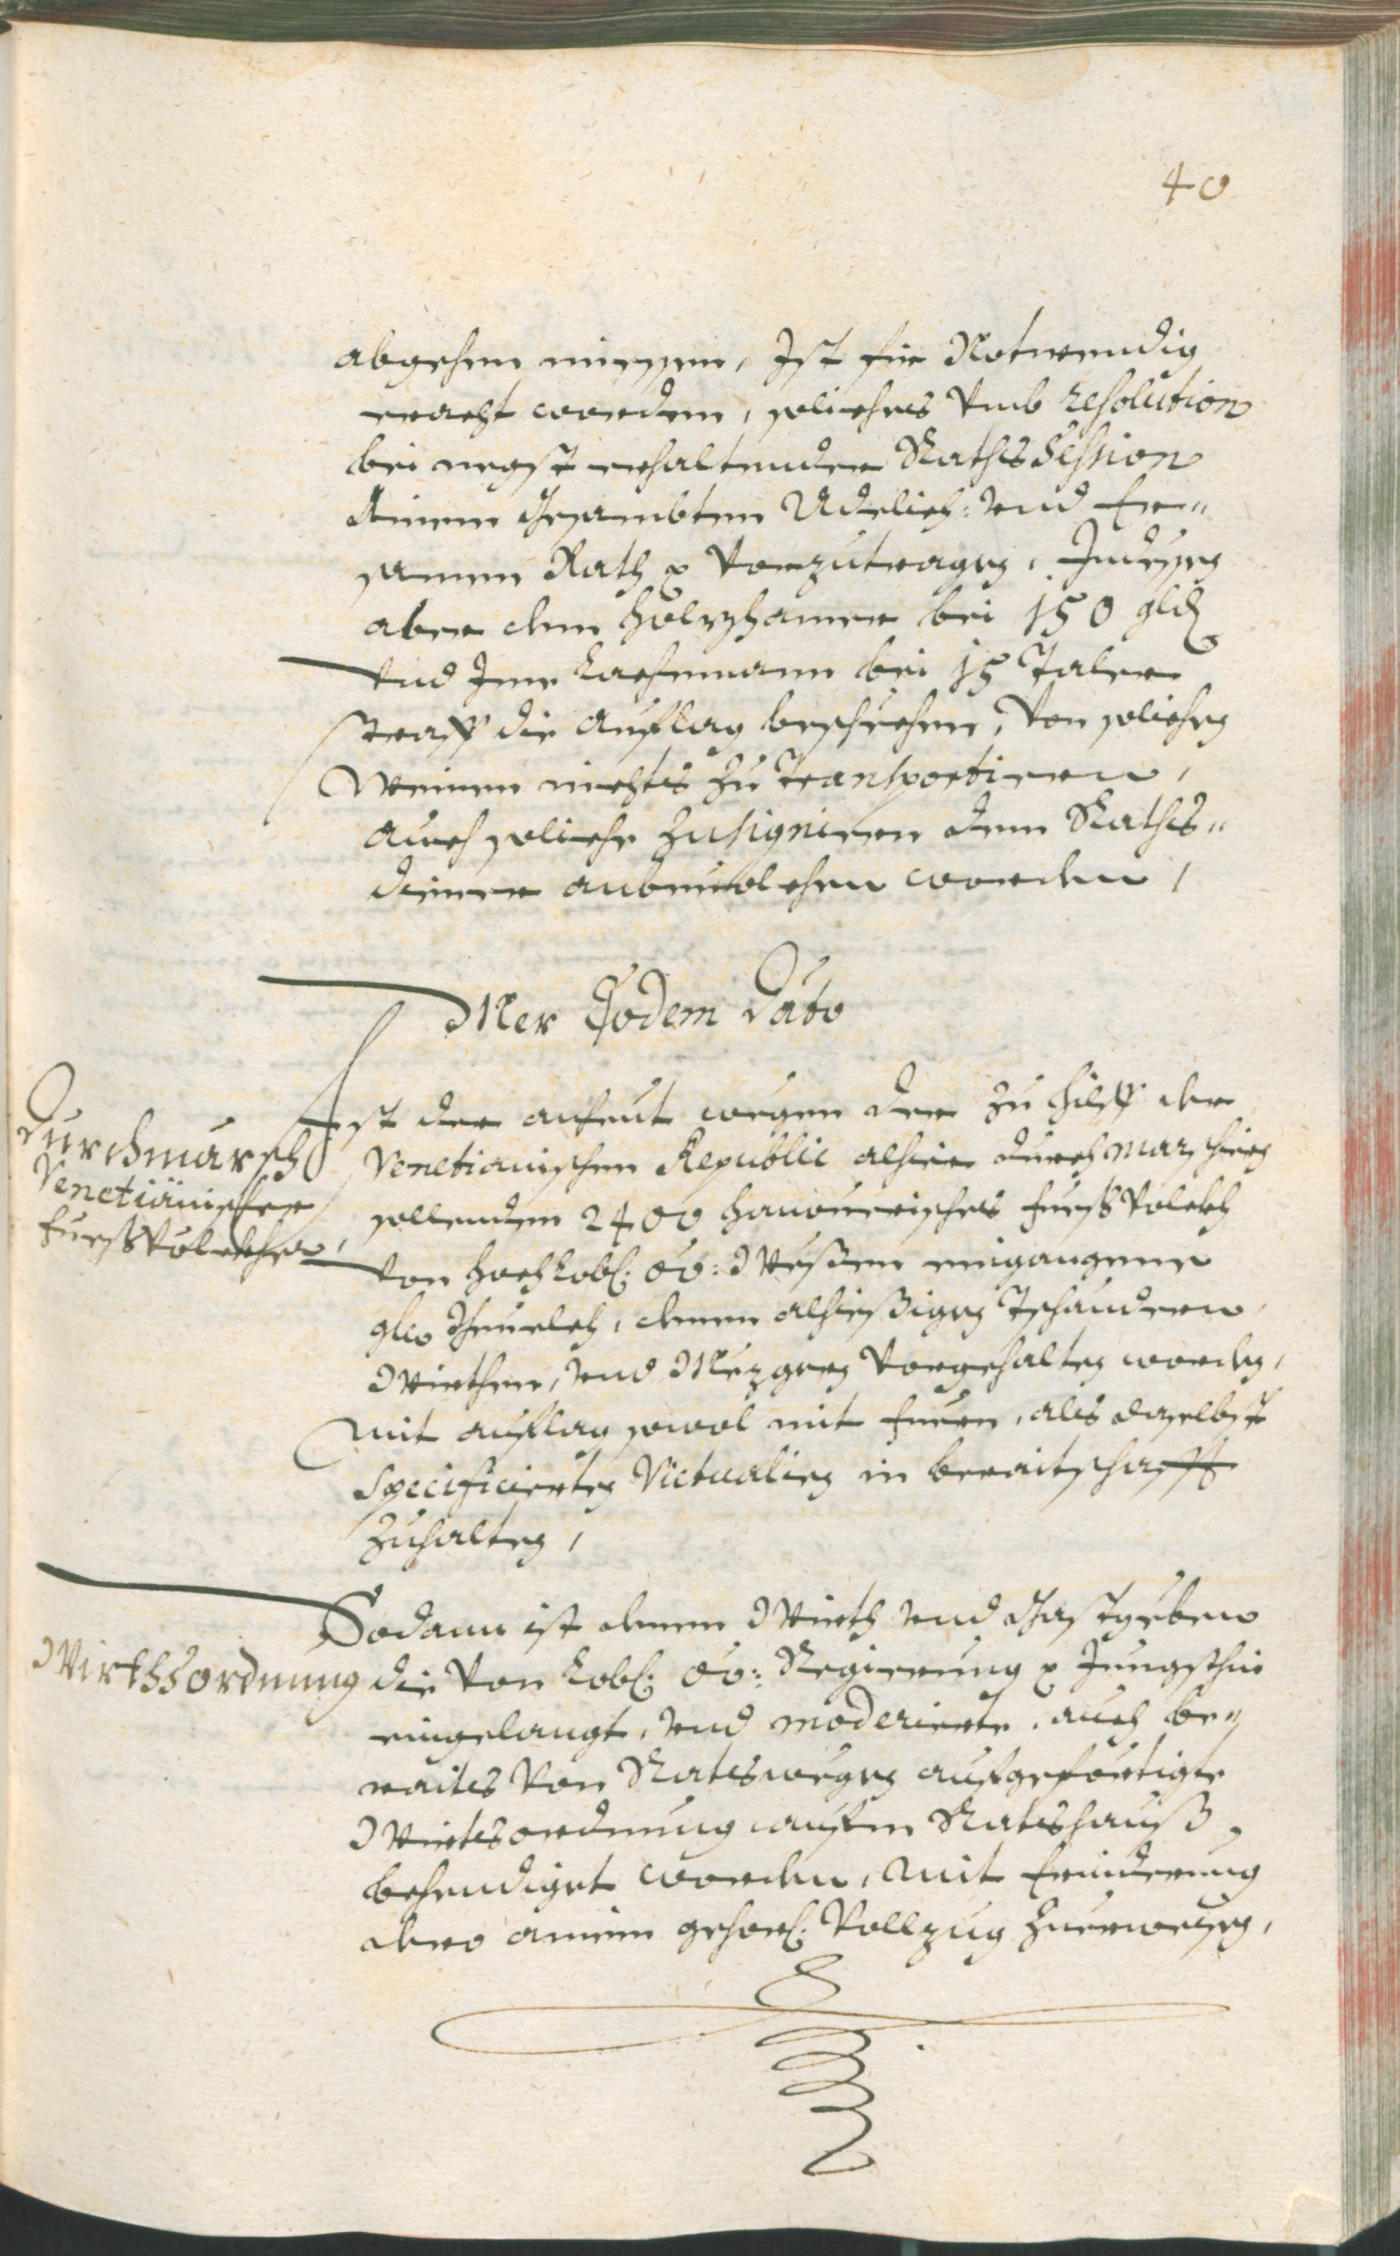 40
abgehen miessen, Ist für Notwendig
eracht worden, soliches vmb resolution
bei negst erhaltender RathsSession
Ainem Gesambten Adelich: vnd Er„
samen Rath p vorzutragen, Indessen
aber dem Holzhamer bei 150 gld
vnd Ime Lachmann bei 15 Taler
Straff die auflag beschehen, von solichen
Weinen nichts zu transportiern,
auch soliche zusigniern dem Raths„
diener anbeuolchen worden,
Mer Eodem Dato
Durchmarsch
Venetiänischer
Fuesßvolckher,
Ist der anheut wegen der zu Hilff der
Venetianischen Republic alhier durch marschiern
sollenden 2400 hanouerisches Fuesß Volckh
von hochLobl: oö: Wesßen eingangene
gdo Beuelch, denen alhiesßigen
Wirthen, vnd Mezgern vorgehalten worden,
mit auflag sowol mit Fuern, als daselbst
Specificierten Victualien in beraitschafft
zuhalten,
Wirthsordnung
Sodann ist denen Wirth vnd Gastgeben
die von Lobl: oö: Regierung p Jungsthin
eingelangt, vnd moderierte, auch be„
raits von Rats wegen aufgefertigte
Wirtsordnung aufm Ratshauß
behendiget worden, mit Erinderung
dero ainem gehorl: Vollzug zuerweisen,